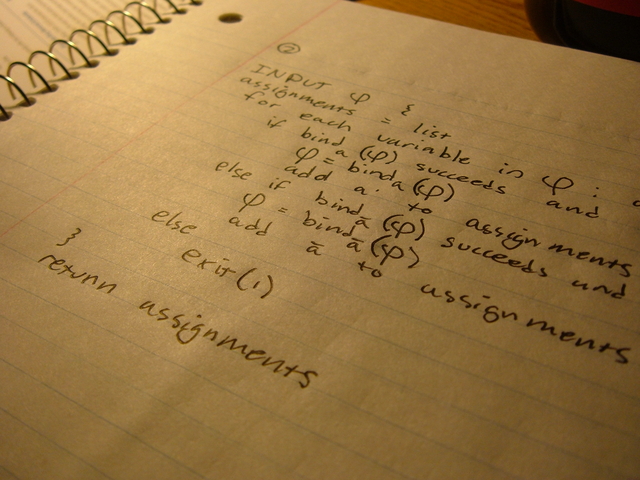 ②
INPUT φ {
assignments = list
for each variable in φ :
if bind a (φ) succeeds and
φ = bind a (φ)
add a to assignments
else if bind ā (φ) succeeds and
φ = bind ā (φ)
add ā to assignments
else
exit(1)
}
return assignments